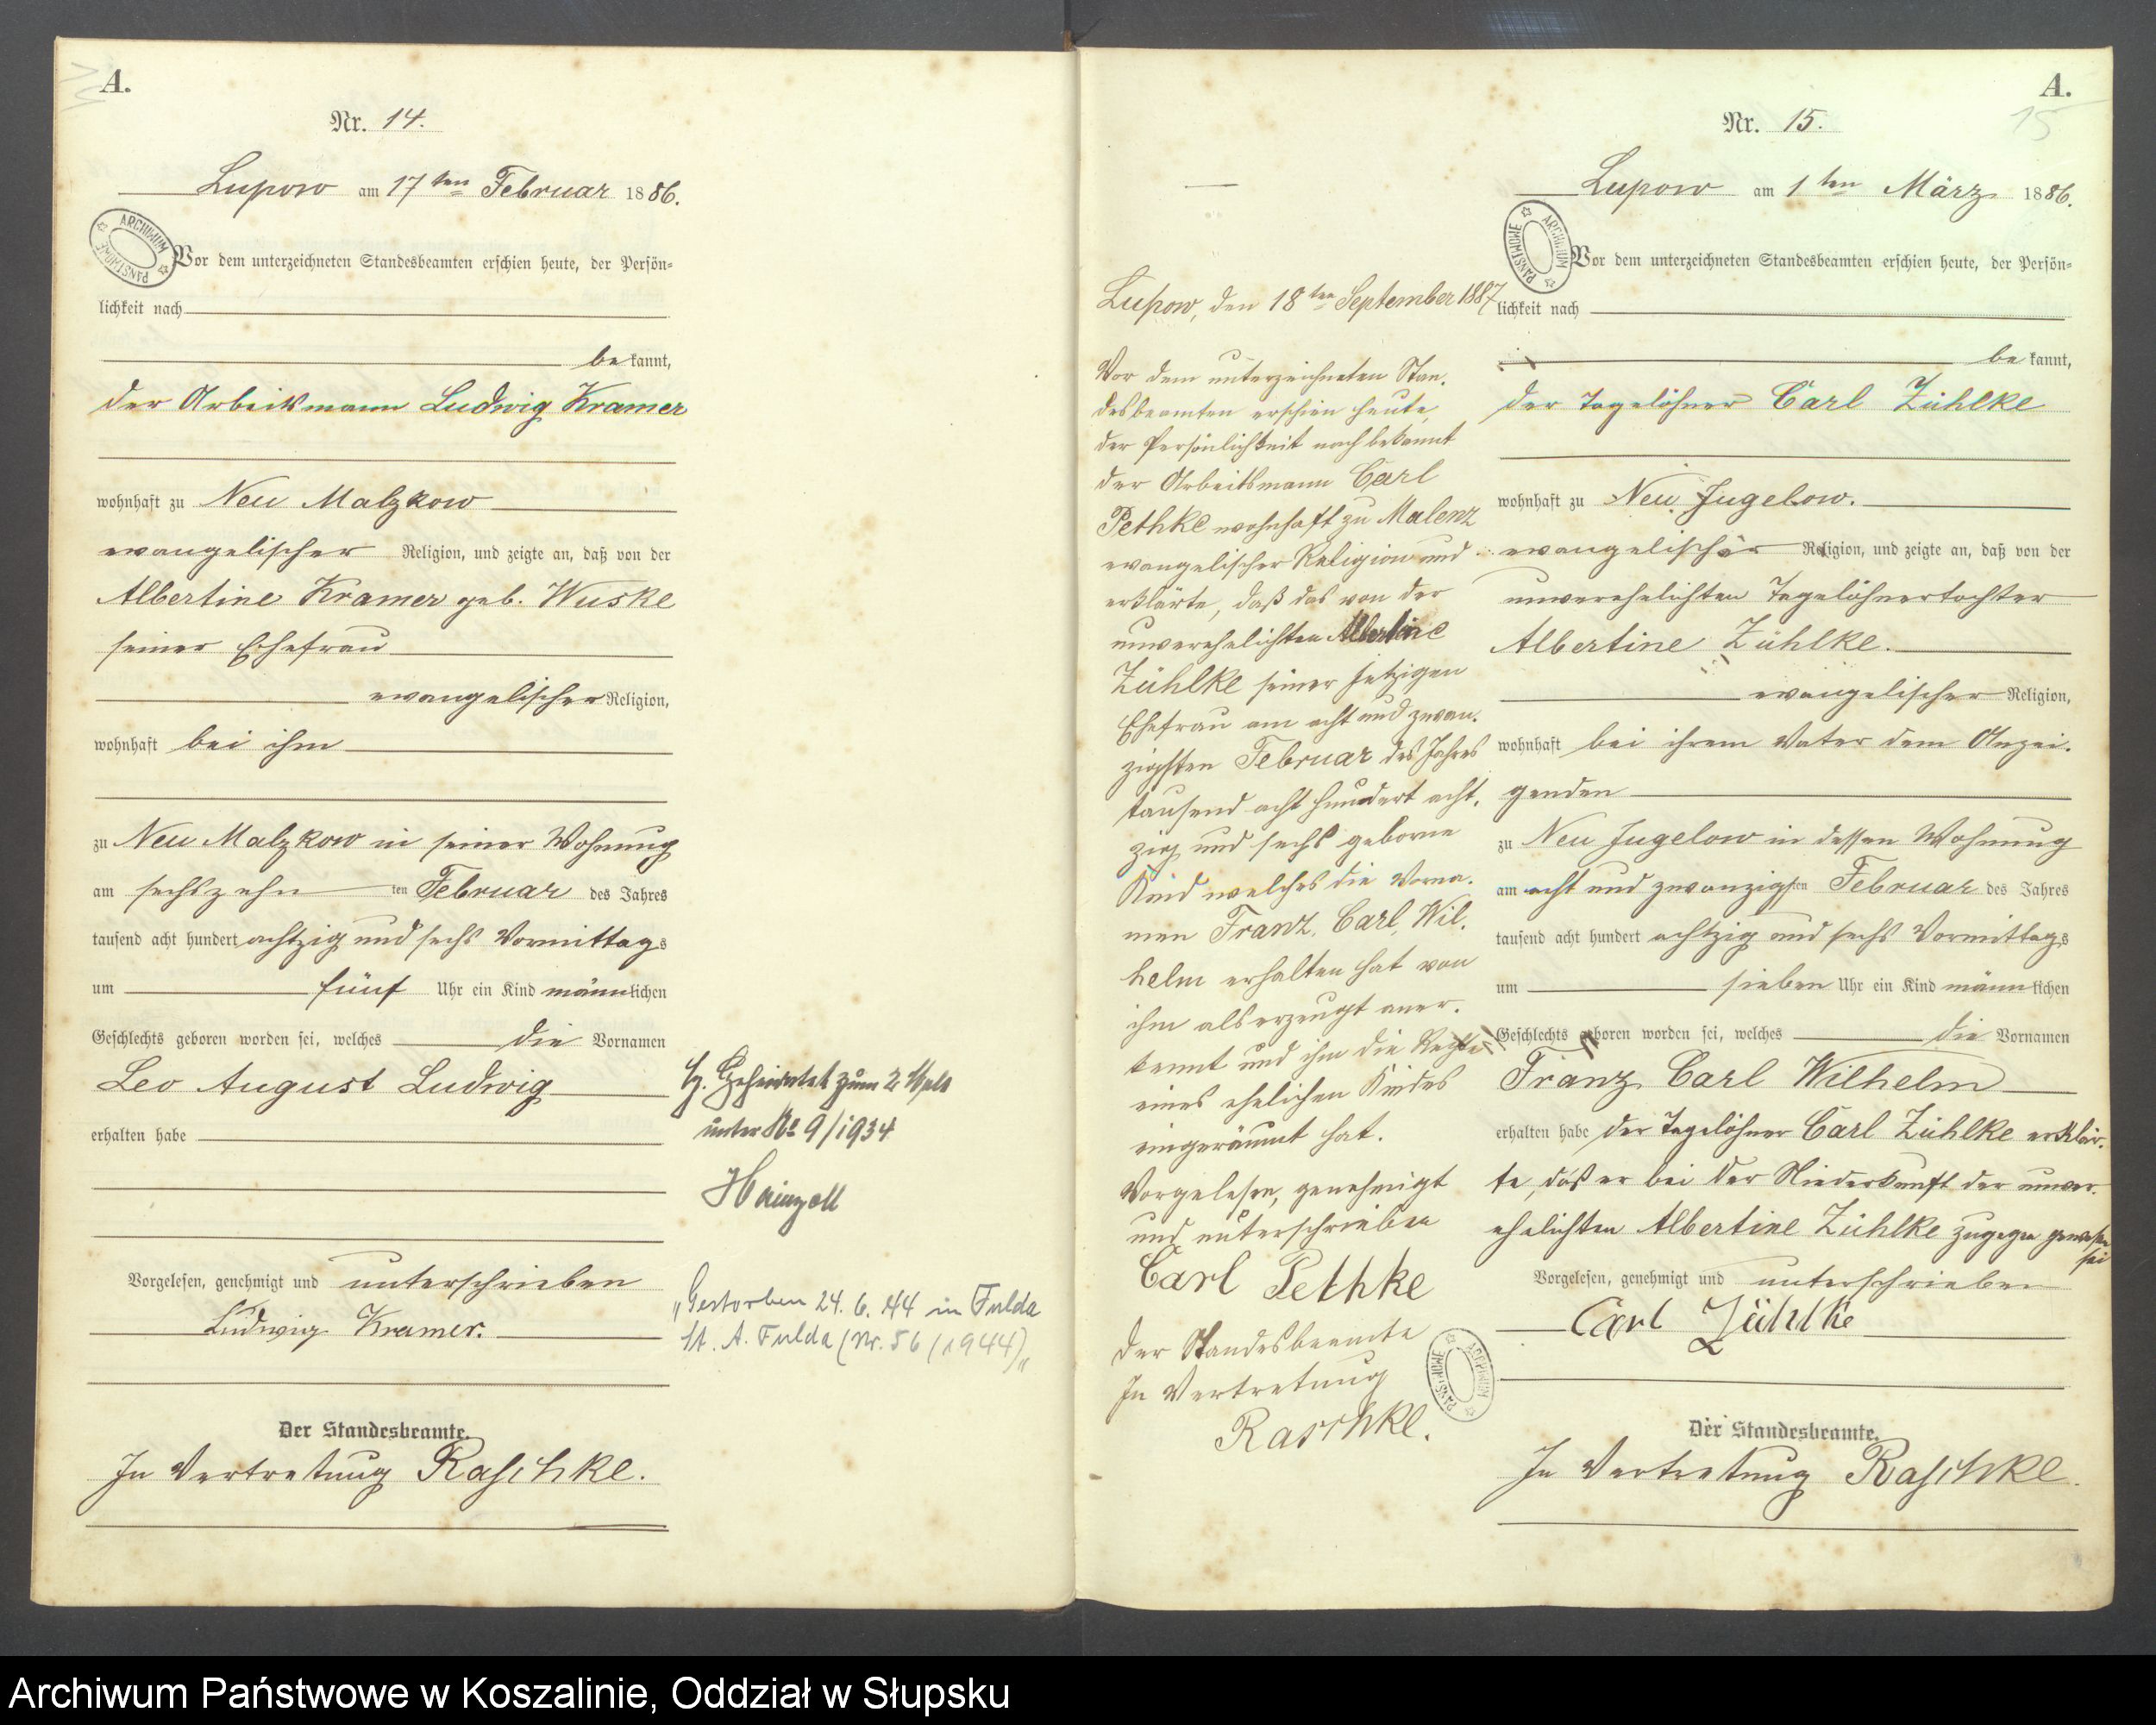 A.
Nr. 14.
Lupow am 17ten Februar 1886.
ARCHIWUM PAŃSTWOWE
Vor dem unterzeichneten Standesbeamten erschien heute, der Persön=
lichkeit nach
be kannt,
der Arbeitsmann Ludwig Kramer
wohnhaft zu Neu Malzkow
evangelischer Religion, und zeigte an, daß von der
Albertine Kramer geb. Wuske
seiner Ehefrau
evangelischer Religion,
wohnhaft bei ihm
zu Neu Malzkow in seiner Wohnung
am sechszehn ten Februar des Jahres
tausend acht hundert achtzig und sechs Vormittags
um fünf Uhr ein Kind männlichen
Geschlechts geboren worden sei, welches die Vornamen
Leo August Ludwig
erhalten habe
Vorgelesen, genehmigt und unterschrieben
Ludwig Kramer.
Der Standesbeamte.
In Vertretung Raschke.
Geheiratet zum 2 Male
unter No 9/1934
"Gestorben 24. 6. 44 in Fulda
St. A. Fulda (Nr. 56/1944)"
Lupow, den 18ten September 1887
Vor dem unterzeichneten Stan-
desbeamten erschien heute,
der Persönlichkeit nach bekannt
der Arbeitsmann Carl
Pethke wohnhaft zu Malenz
evangelischer Religion und
erklärte, daß das von der
unverehelichten Albertine
Zühlke seiner jetzigen
Ehefrau am acht und zwan-
zigsten Februar des Jahres
tausend acht hundert acht-
zig und sechs geborne
Kind welches die Vorna-
men Franz, Carl, Wil-
helm erhalten hat von
ihm als erzeugt aner-
kennt und ihm die Rechte
eines ehelichen Kindes
eingeräumt hat.
Vorgelesen, genehmigt
und unterschrieben
Carl Pethke
Der Standesbeamte
In Vertretung
Raschke.
ARCHIWUM PAŃSTWOWE
A.
15
Nr. 15.
Lupow am 1ten März 1886.
ARCHIWUM PAŃSTWOWE
Vor dem unterzeichneten Standesbeamten erschien heute, der Persön=
lichkeit nach
be kannt,
der Tagelöhner Carl Zühlke
wohnhaft zu Neu Jugelow.
evangelischer Religion, und zeigte an, daß von der
unverehelichten Tagelöhnertochter
Albertine Zühlke.
evangelischer Religion,
wohnhaft bei ihrem Vater dem Anzei-
genden
zu Neu Jugelow in dessen Wohnung
am acht und zwanzigsten Februar des Jahres
tausend acht hundert achtzig und sechs Vormittags
um sieben Uhr ein Kind männlichen
Geschlechts geboren worden sei, welches die Vornamen
Franz Carl Wilhelm
erhalten habe der Tagelöhner Carl Zühlke erklär-
te, das er bei der Niederkunft der unver-
ehelichten Albertine Zühlke zugegen gewesen
sei
Vorgelesen, genehmigt und unterschrieben
Carl Zühlke
Der Standesbeamte.
In Vertretung Raschke.
Archiwum Państwowe w Koszalinie, Oddział w Słupsku